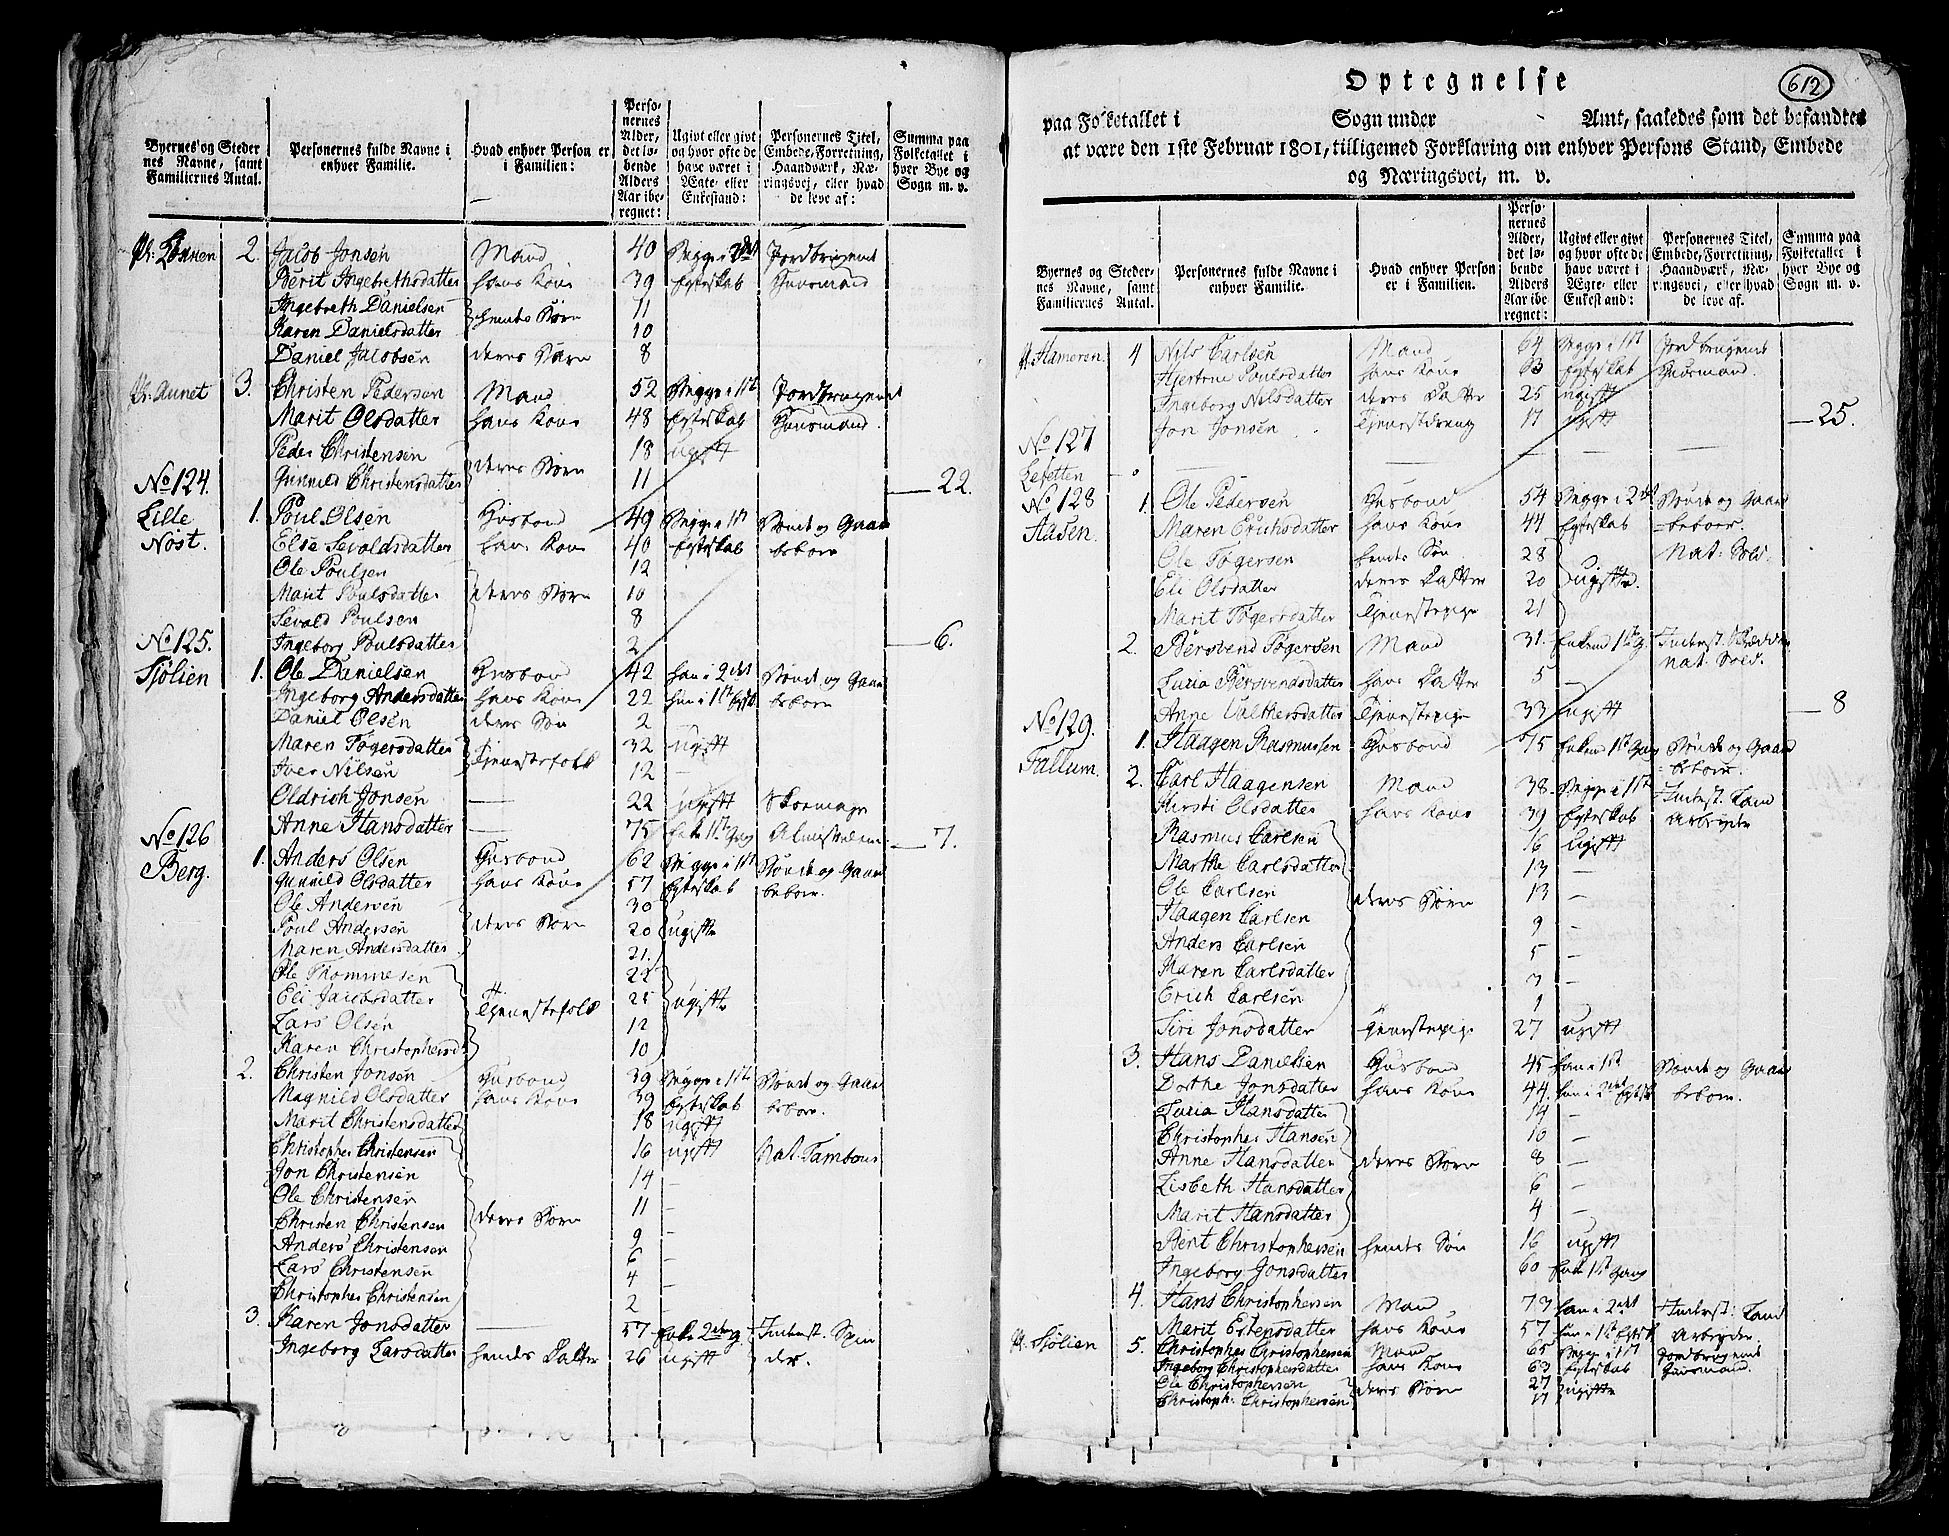 Byernes og Steder
nes Navne, samt
Familiernes Antal.
Personernes fulde Navne i
enhver Familie.
Hvad enhver Person er
i Familien:
Perso-
nernes
Alder,
det lø-
bende
Alders
Aar ibe-
regnet:
Ugivt eller givt
og hvor ofte de
have været i
Ægte- eller
Enkestand:
Personernes Titel,
Embede, Forretning,
Haandværk, Næ-
ringsvej, eller hvad
de leve af:
Summa paa
Folketallet i
hver Bye og
Sogn m. v.
2. Jacob Jonsen Mand 40 Begge i 2det Jordbrugende
Berit Ingebrethsdatter hans Kone 39 Egteskab Huusmand
Ingebreth Danielsen 11
hendes Børn
Karen Danielsdatter 10
Daniel Jacobsen deres Børn 8
Pl: Aunet 3. Christen Pedersen Mand 52 Begge i 1ste Jordbrugende
Marit Olsdatter hans Kone 48 Egteskab Huusmand.
Peder Christensen 18 ugift
deres Børn
No 124. Gunnild Christensdatter 11 22.
Lille 1. Poul Olsen Husbond 49 Begge i 1ste Bonde og Gaard
Nøst. Else Sevaldsdatter hans Kone 40 Egteskab beboer
Ole Poulsen 12
Marit Poulsdatter deres Børn 10
Sevald Poulsen 8
No 125. Ingeborg Poulsdatter 2 6.
Sjølien 1. Ole Danielsen Husbond 42 han i 2det Bonde og Gaard
Ingeborg Andersdatter hans Kone 22 hun i 1ste Egtsk. beboer
Daniel Olsen deres Søn 2
Maren Tøgersdatter 32 ugift
Tjenestefolk
Iver Nilsen 12 —
Oldrich Jonsen — 22 ugift Skomager
No 126 Anne Hansdatter — 75 Enke 1ste Gang 7.
Berg. 1. Anders Olsen Husbond 62 Begge i 1ste Bonde og Gaard
Gunnild Olsdatter hans Kone 57 Egteskab beboer.
Ole Andersen 30
Poul Andersen deres Børn 20 ugifte
Maren Andersdatter 21
Ole Thommesen 22
Eli Jacobsdatter 25
Tjenestefolk ugifte
Lars Olsen 12
Karen Christophersd: 10
2. Christen Jonsen Husbond 39 Begge i 1ste Bonde og Gaard
Magnild Olsdatter hans Kone 39 Egteskab beboer.
Marit Christensdatter 18 ugift
Christopher Christensen 16 ugift Nat. Tambour
Jon Christensen 14 —
Ole Christensen 11 —
deres Børn
Christen Christensen 9 —
Anders Christensen 6 —
Lars Christensen 4 —
Christopher Christensen 2 —
3. Karen Jonsdatter — 57 Enke 2den g. Inderst. Spin
Ingeborg Larsdatter hendes Datter 26 ugift der.
Optegnelse
612
paa Folketallet i Sogn under Amt, saaledes som det befandtes
at være den 1ste Februar 1801, tilligemed Forklaring om enhver Persons Stand, Embede
og Næringsvei, m. v.
Byernes og Steder-
nes Navne, samt
Familiernes Antal.
Personernes fulde Navne i
enhver Familie.
Hvad enhver Person
er i Familien.
Perso-
nernes
Alder,
det lø-
bende
Alders
Aar ibe
regnet:
Ugivt eller givt
og hvor ofte de
have været i
Ægte- eller
Enkestand:
Personernes Titel,
Embede, Forretning,
Haandværk, Næ-
ringsvej, eller hvad
de leve af.
Summa paa
Folketallet i
hver Bye og
Sogn m. v.
Pl. Hameren. 4 Nils Carlsen Mand 64 Begge i 1ste Jordbrugende
Hjertrue Poulsdatter hans Kone 63 Egteskab Huusmand.
Ingeborg Nilsdatter deres Datter 25 ugift
Jon Jonsen Tjenestdreng 17 ugift 25.
No 127
Lefetten
No 128 1. Ole Pedersen Husbond 54 Begge i 2det Bonde og Gaard
Aasen. Maren Erichsdatter hans Kone 44 Egteskab beboer.
Ole Tøgersen hendes Søn 28 Nat: Sold.
Eli Olsdatter deres Datter 20 ugifte.
Marit Tøgersdatter Tjenestepige 21
2. Bersvend Tøgersen Mand 31. Enkem 1ste g. Inderst. Skrædder
nat. Sold.
Lucia Bersvendsdatter hans Datter 5 —
No 129. Anne Valthersdatter Tjenestepige 33 ugift 8
Fallum. 1. Haagen Rasmussen Husbond 75 Enkem 1ste Gang Bonde og Gaard
beboer.
2. Carl Haagensen Mand 38 Begge i 1ste Inderst. Land
Kirsti Olsdatter hans Kone 39 Egteskab Arbeyder
Rasmus Carlsen 16 Ugift
Marthe Carlsdatter 13 —
Ole Carlsen deres Børn 13 —
Haagen Carlsen 9 —
Anders Carlsen 5 —
Karen Carlsdatter 3 —
Erich Carlsen 1
Siri Jonsdatter tjenestepige 27 ugift
3. Hans Danielsen Husbond 45 han i 1ste Bonde og Gaard
Dorthe Jonsdatter hans Kone 44. hun i 2det Egtesk beboer.
Lucia Hansdatter 14 —
Christopher Hansen 10 —
Anne Hansdatter deres Børn 8 —
Lisbeth Hansdatter 6 —
Marit Hansdatter 4 —
Bent Christophersen hendes Søn 16 ugift
Ingeborg Jonsdatter 60 Enke 1ste Gang
4. Hans Christophersen Mand 73 han i 2det Inderst: Land
Marit Estensdatter hans Kone 57 hun i 1ste Egtesk Arbeyder.
Pl. Sjølien 5. Christopher Christophersen Mand 65 Begge i 1ste Jordbrugende
Ingeborg Christophersdatter hans Kone 63 Egteskab Huusmand.
Ole Christophersen 27
deres Børn ugifte
Christoph: Christophersen 17